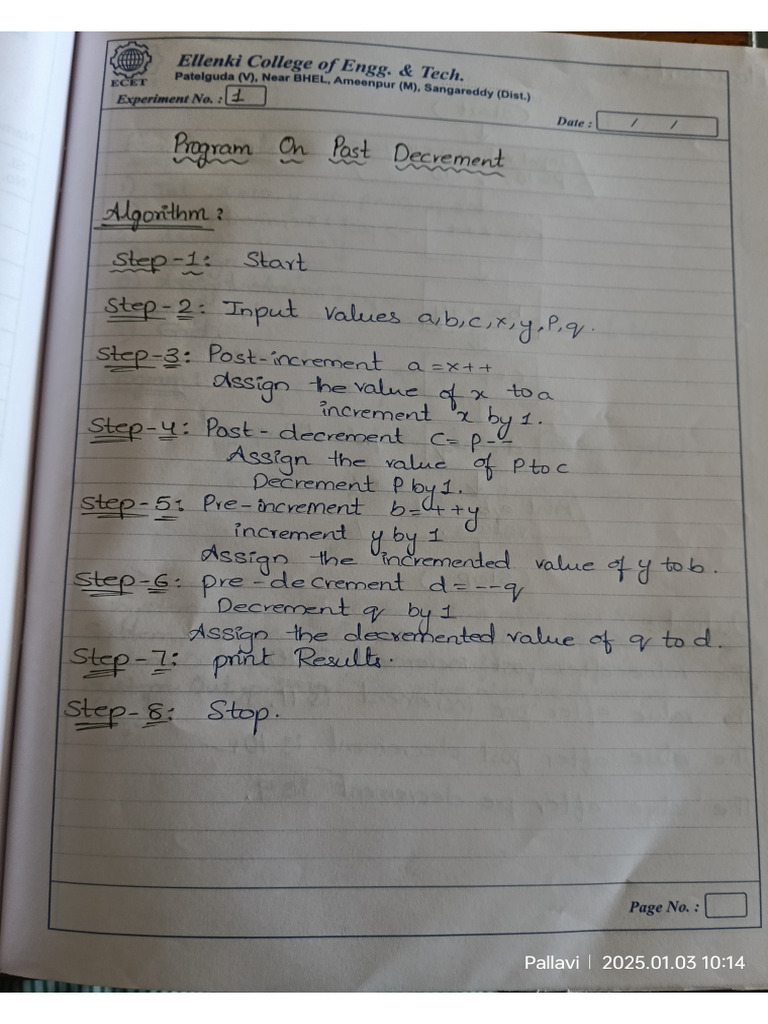 Ellenki College of Engg. & Tech.
ECET
Patelguda (V), Near BHEL, Ameenpur (M), Sangareddy (Dist.)
Experiment No. : 1
Date : / /
Program On Post Decrement
Algorithm :
Step-1: Start
Step-2: Input values a,b,c,x,y,P,q.
Step-3: Post-increment a=x++
Assign the value of x to a
increment x by 1.
Step-4: Post-decrement c= p--
Assign the value of P to c
Decrement P by 1.
Step-5: Pre-increment b=++y
increment y by 1
Assign the incremented value of y to b.
Step-6: pre-decrement d=--q
Decrement q by 1
Assign the decremented value of q to d.
Step-7: print Results.
Step-8: Stop.
Page No. :
Pallavi | 2025.01.03 10:14